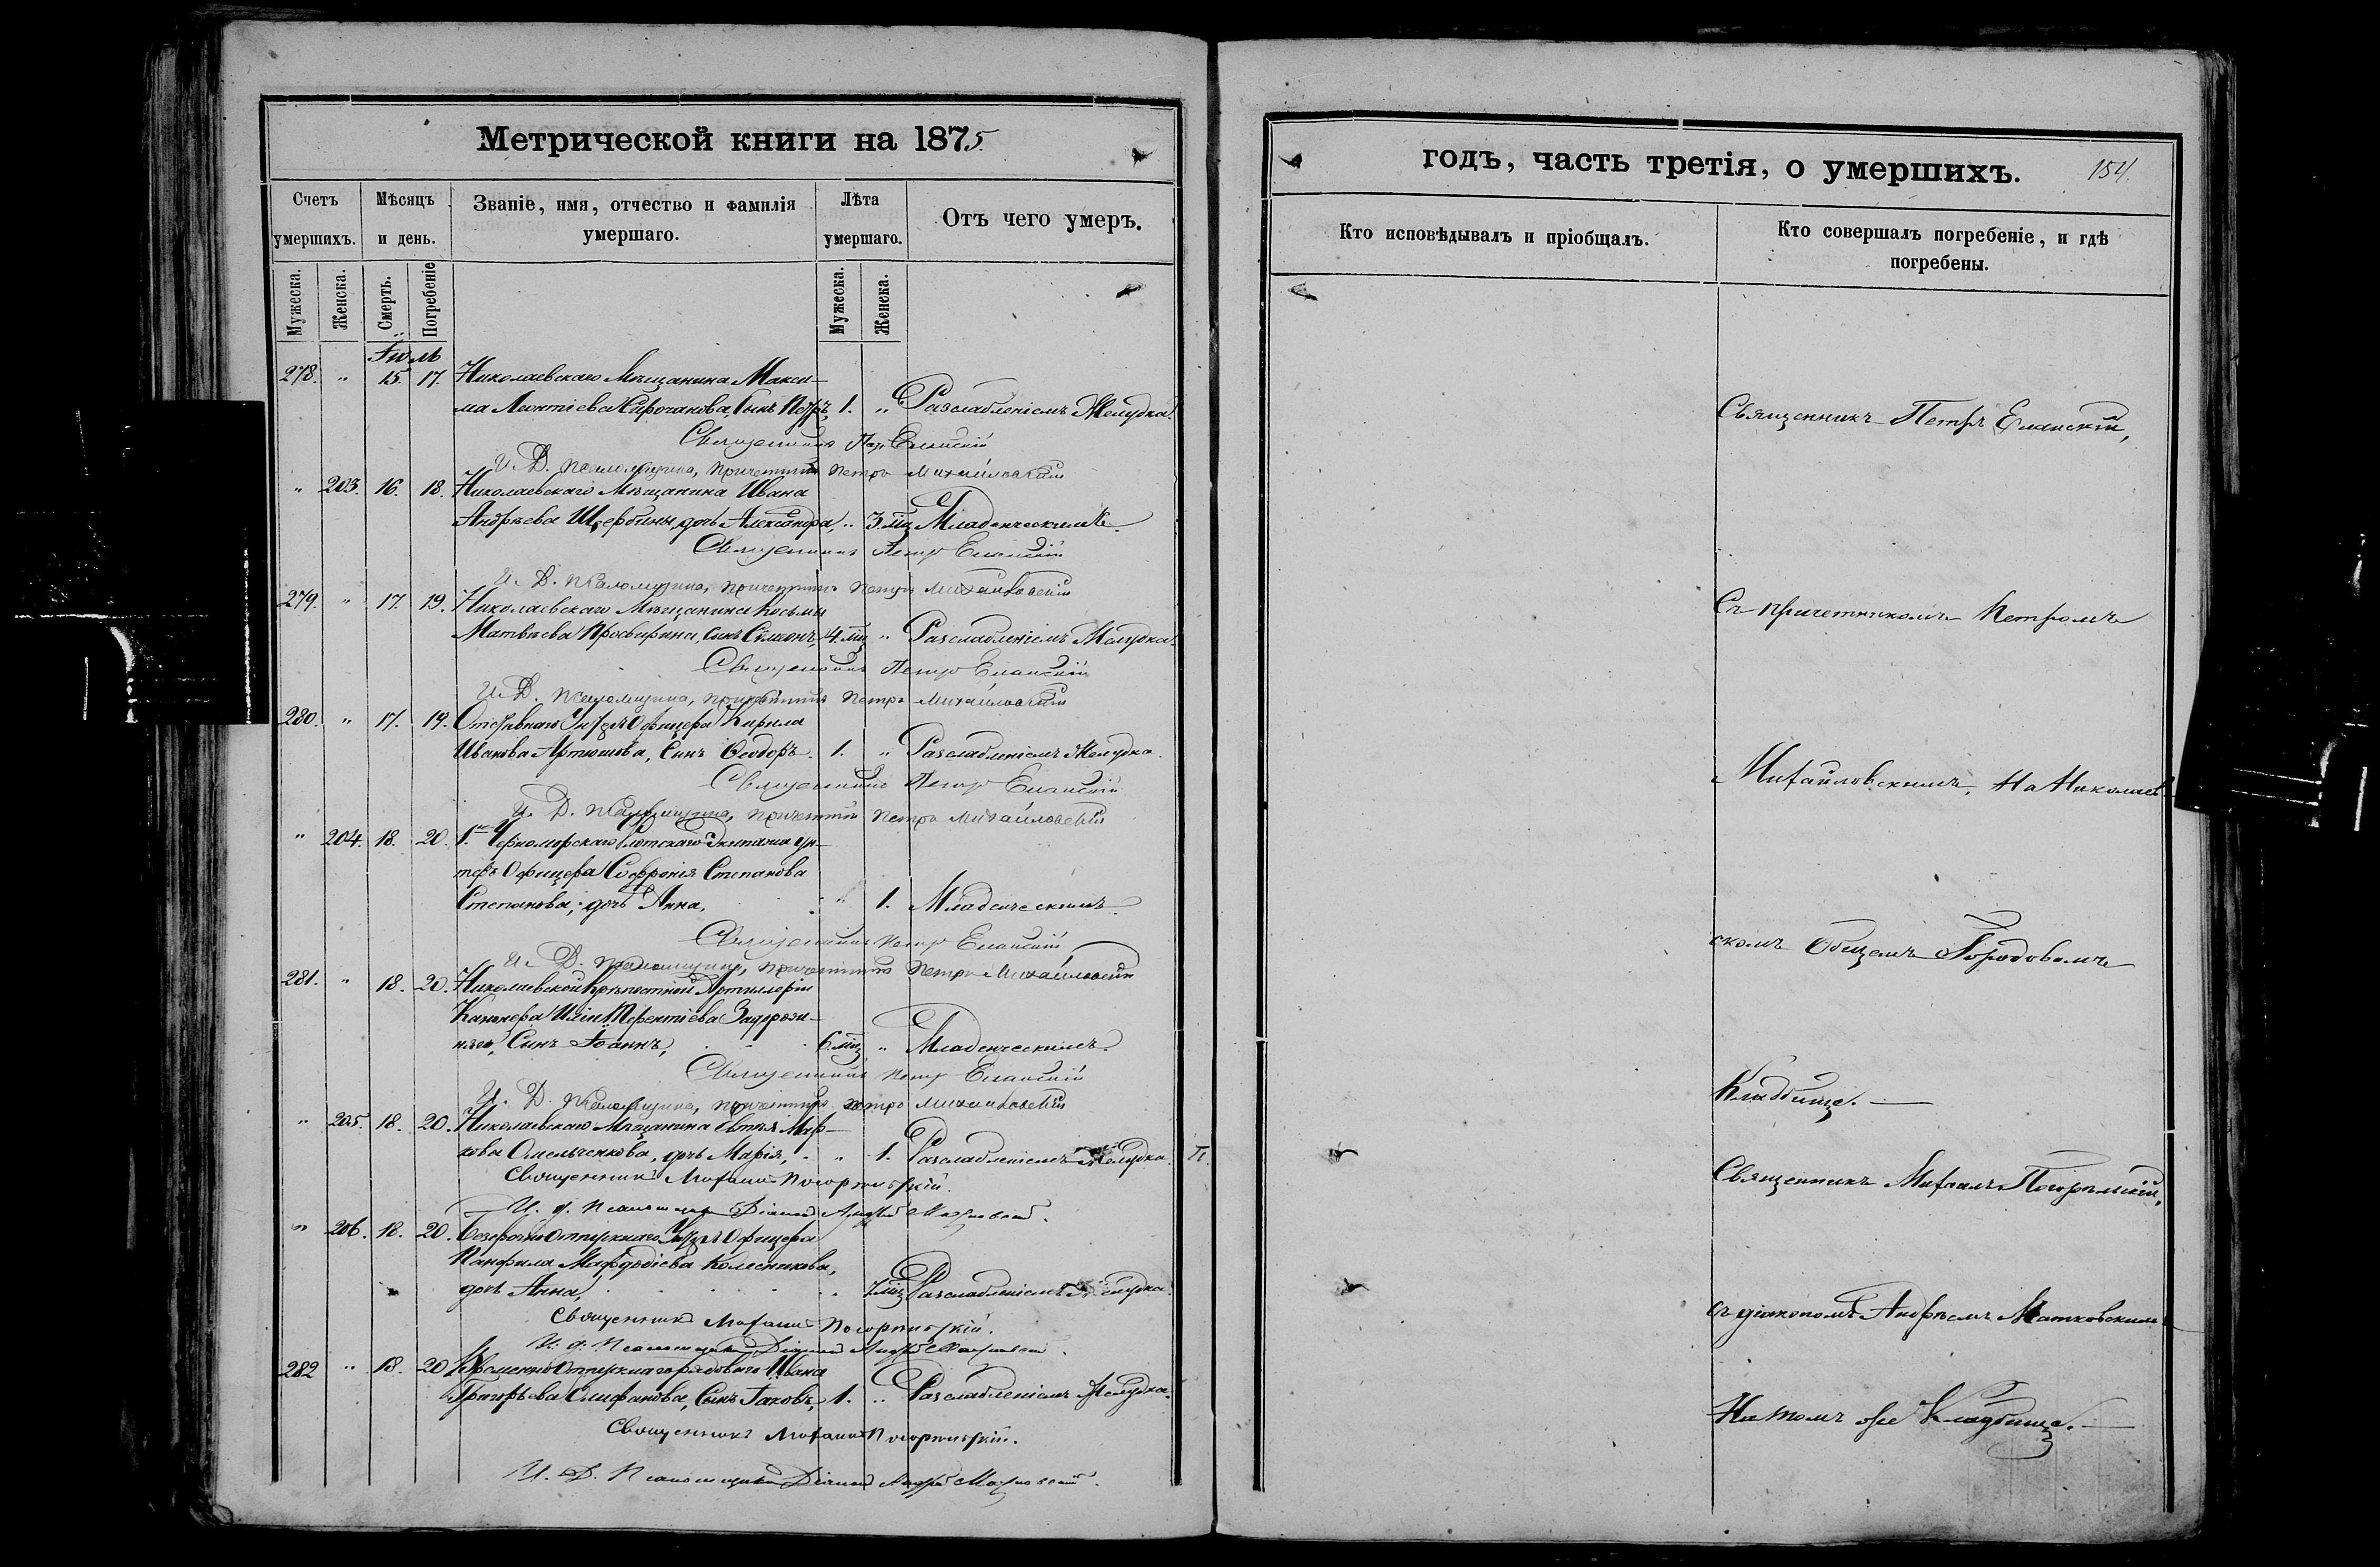 Метрической книги на 1875.
Счетъ умершихъ.
Мѣсяцъ и день.
Званіе, имя, отчество и фамилія умершаго.
Лѣта умершаго.
Отъ чего умеръ.
Мужеска.
Женска.
Смерть.
Погребеніе
Мужеска.
Женска.
Іюль
278. " 15. 17. Николаевскаго Мѣщанина Макси-
ма Леонтіева Сынъ Петръ, 1. " Разслабленіемъ Желудка.
Священникъ Петръ Еланскій
И. Д. Псаломщика, Причетникъ Петръ Михайловскій
" 203. 16. 18. Николаевскаго Мѣщанина Ивана
Андреева Щербины, дочь Александра, " 3. мц Младенческимъ.
Священникъ Петръ Еланскій
И. Д. Псаломщика, Причетникъ Петръ Михайловскій
279. " 17. 19. Николаевскаго Мѣщанина Косьмы
Матвѣева Просвирина, сынъ Симеонъ, 4. мц " Разслабленіемъ Желудка.
Священникъ Петръ Еланскій
И. Д. Псаломщика, Причетникъ Петръ Михайловскій
280. " 17. 19. Отставнаго Унтеръ Офицера Кирила
Иванова Артюшова, Сынъ Ѳеодоръ. 1. " Разслабленіемъ Желудка.
Священникъ Петръ Еланскій
И. Д. Псаломщика, Причетникъ Петръ Михайловскій
" 204. 18. 20. 1го Черноморскаго Флотскаго Экипажа ун-
теръ Офицера Софронія Степанова
Степанова, дочь Анна, " 1. Младенческимъ.
Священникъ Петръ Еланскій
И. Д. Псаломщика, Причетникъ Петръ Михайловскій
281. " 18. 20. Николаевской Крѣпостной Артиллеріи
Канонера Иліи Терентіева
Сынъ Іоаннъ, 6. мц " Младенческимъ.
Священникъ Петръ Еланскій
И. Д. Псаломщика, Причетникъ Петръ Михайловскій
" 205. 18. 20. Николаевскаго Мѣщанина Евтихія Мар-
кова Омельченкова, дочь Марія, " 1. Разслабленіемъ Желудка.
Священникъ Михаилъ Погорѣльскій.
И. д. Псаломщика Діаконъ Андрей Матковскій.
" 206. 18. 20. Безсрочно Отпускнаго Унтеръ Офицера
Панфила Колесникова,
дочь Анна, " 7. мц Разслабленіемъ Желудка.
Священникъ Михаилъ Погорѣльскій.
И. д. Псаломщика Діаконъ Андрей Матковскій.
282 " 18. 20. Временно Отпускнаго рядоваго Ивана
Григорьева Епифанова, Сынъ Іаковъ, 1. " Разслабленіемъ Желудка.
Священникъ Михаилъ Погорѣльскій.
И. Д. Псаломщика Діаконъ Андрей Матковскій.
годъ, часть третія, о умершихъ.
154.
Кто исповѣдывалъ и пріобщалъ.
Кто совершалъ погребеніе, и гдѣ погребены.
Священникъ Петръ Еланскій,
Съ причетникомъ Петромъ
Михайловскимъ, На Николаев-
скомъ Общемъ Городовомъ
Кладбище.
Священникъ Михаилъ Погорѣльскій,
съ діакономъ Андреемъ Матковскимъ
На томъ же Кладбище.